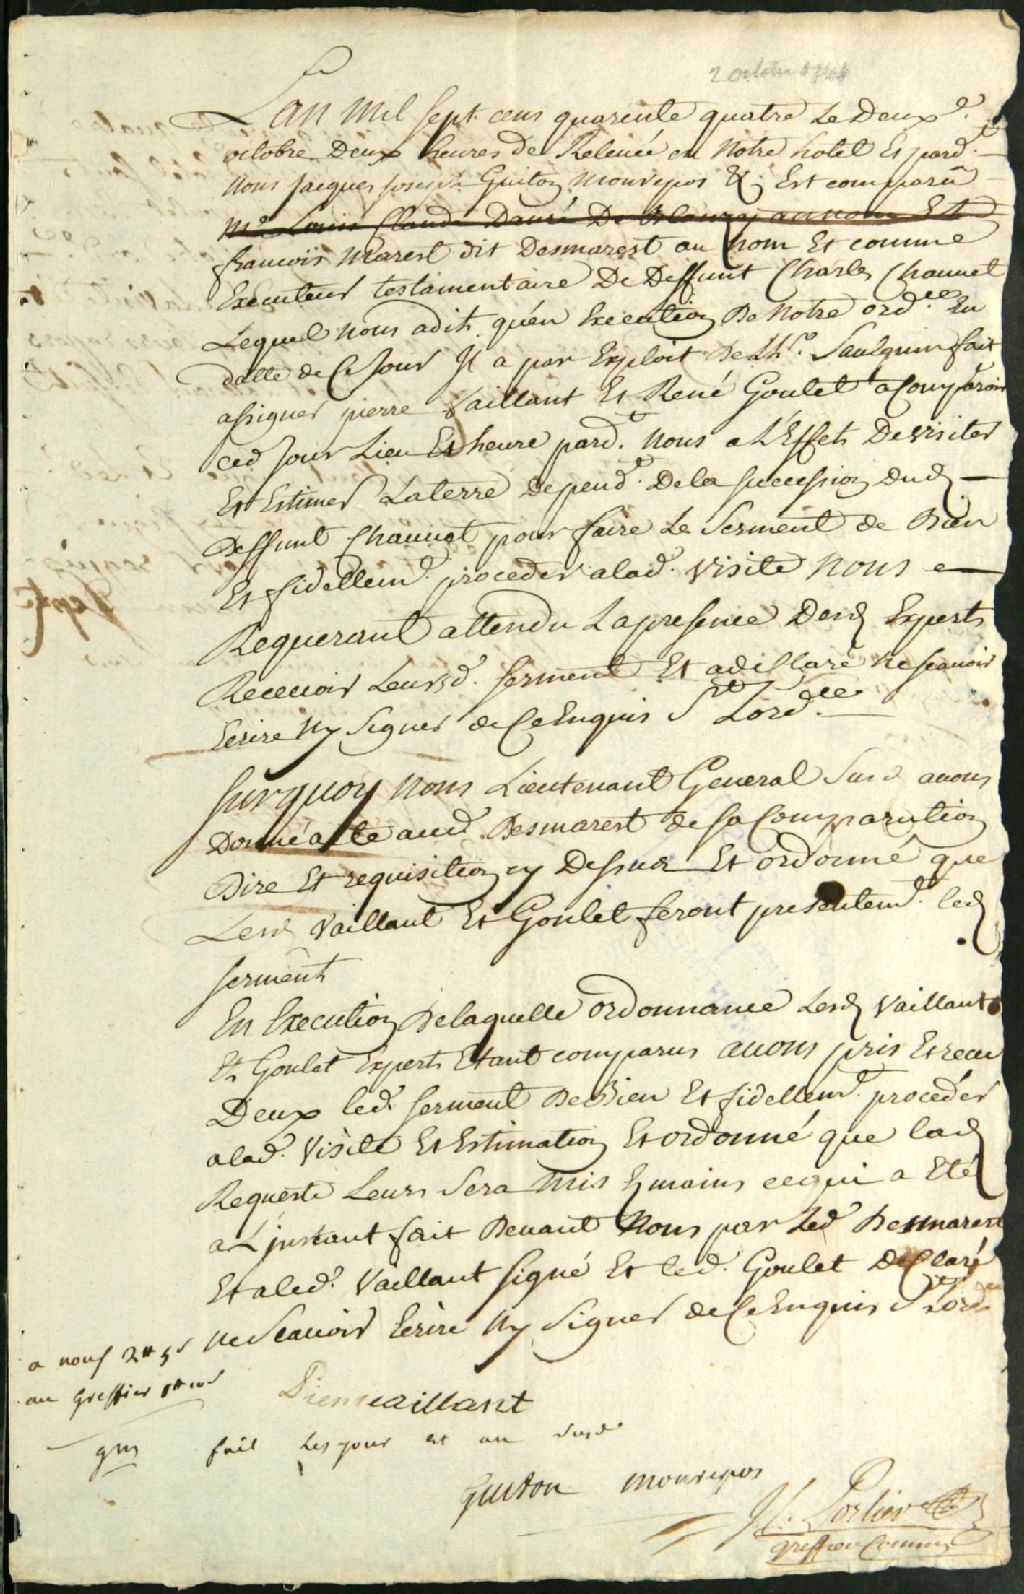 2 octobre 1744
Lan mil sept cens quarente quatre Le Deuxe.
octobre Deux heures de Relevée en Notre hotel Et pard.t
Nous Jacques Joseph Guiton Monrepos &c. Est comparû
Me Louis Claude Danré De Blanzy au nom Et
francois Marest dit Desmarest au Nom Et comme
Executeur testamentaire De Deffunt Charles Chauvet
Lequel Nous adit quén Execution De Notre ord.ce En
datte de Ce Jour Il a par Exploit De Lh.r fait
assigner pierre Vaillant Et René Goulet a Comparoir
ced. Jour Lieu Et heure pard.t Nous a L'Effet De visiter
Et Estimer Laterre depend.te Dela succession dud.
Deffunt Chauvet pour faire Le Serment de Bien
Et fidellem.t proceder alad. Visite Nous
Requerant attendu La presence Desd. Experts
Recevoir Leursd. serment Et adeClaré ne scavoir
Ecrire Ny Signer de Ce Enquis St Lord.ce
Surquoy Nous Lieutenant General Susd. avons
Donné acte aud. Desmarest de sa Comparution
Dire Et requisition cy Dessus Et ordonné que
Lesd. Vaillant Et Goulet feront presentem.t led.
serment
En Execution Delaquelle ordonnance Lesd. Vaillant
Et Goulet Experts Etant comparus avons pris Et recu
Deux led. serment De Bien Et fidellem.t procéder
alad. Visite Et Estimation Et ordonné que lad.
Requeste Leurs Sera Mis Es mains cequi a Eté
a L'instant fait Devant Nous par Led. Desmarest
Et aled. Vaillant signé Et led. Goulet DeClaré
Ne Scavoir Ecrire Ny Signer de Ce Enquis St Lord.ce
a nous 2# 5s
au Greffier
Pierre vaillant
gm fait Les jour et an susd.
Guiton Monrepos
Porlier
greffier Commis